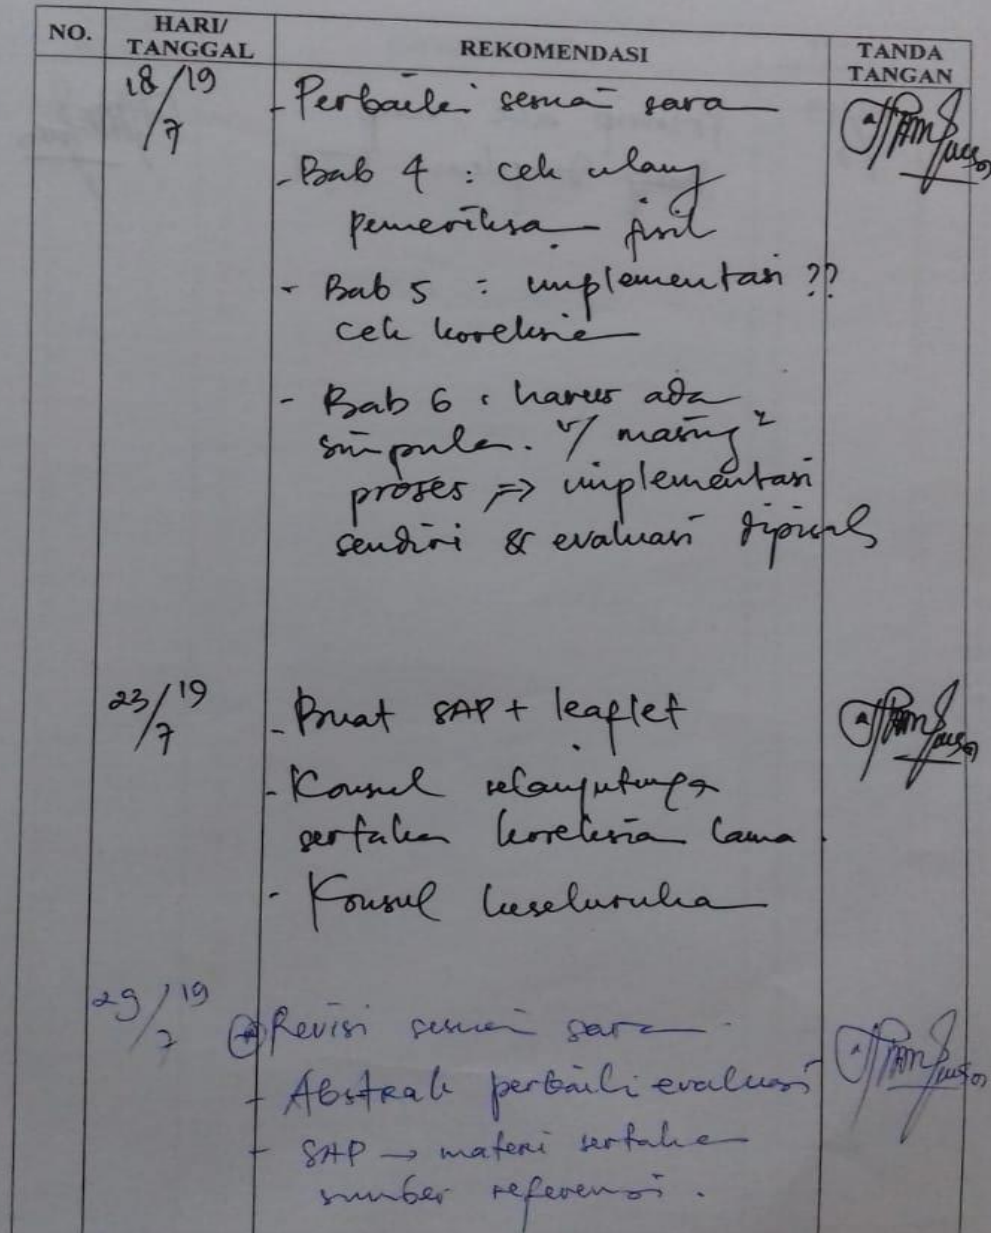 NO.
HARI/
TANGGAL
REKOMENDASI
TANDA
TANGAN
18/19
7
- Perbaiki sesuai saran
- Bab 4 : cek ulang
pemeriksaan fisik
- Bab 5 : implementasi ??
cek koreksian
- Bab 6 : harus ada
simpulan. u/ masing²
proses => implementasi
sendiri & evaluasi dipisah
23/19
7
- Buat SAP + leaflet
- Konsul selanjutnya
sertakan koreksian lama.
- Konsul keseluruhan
29/19
7
Revisi sesuai saran
- Abstrak perbaiki evaluasi
- SAP → materi sertakan
sumber referensi.